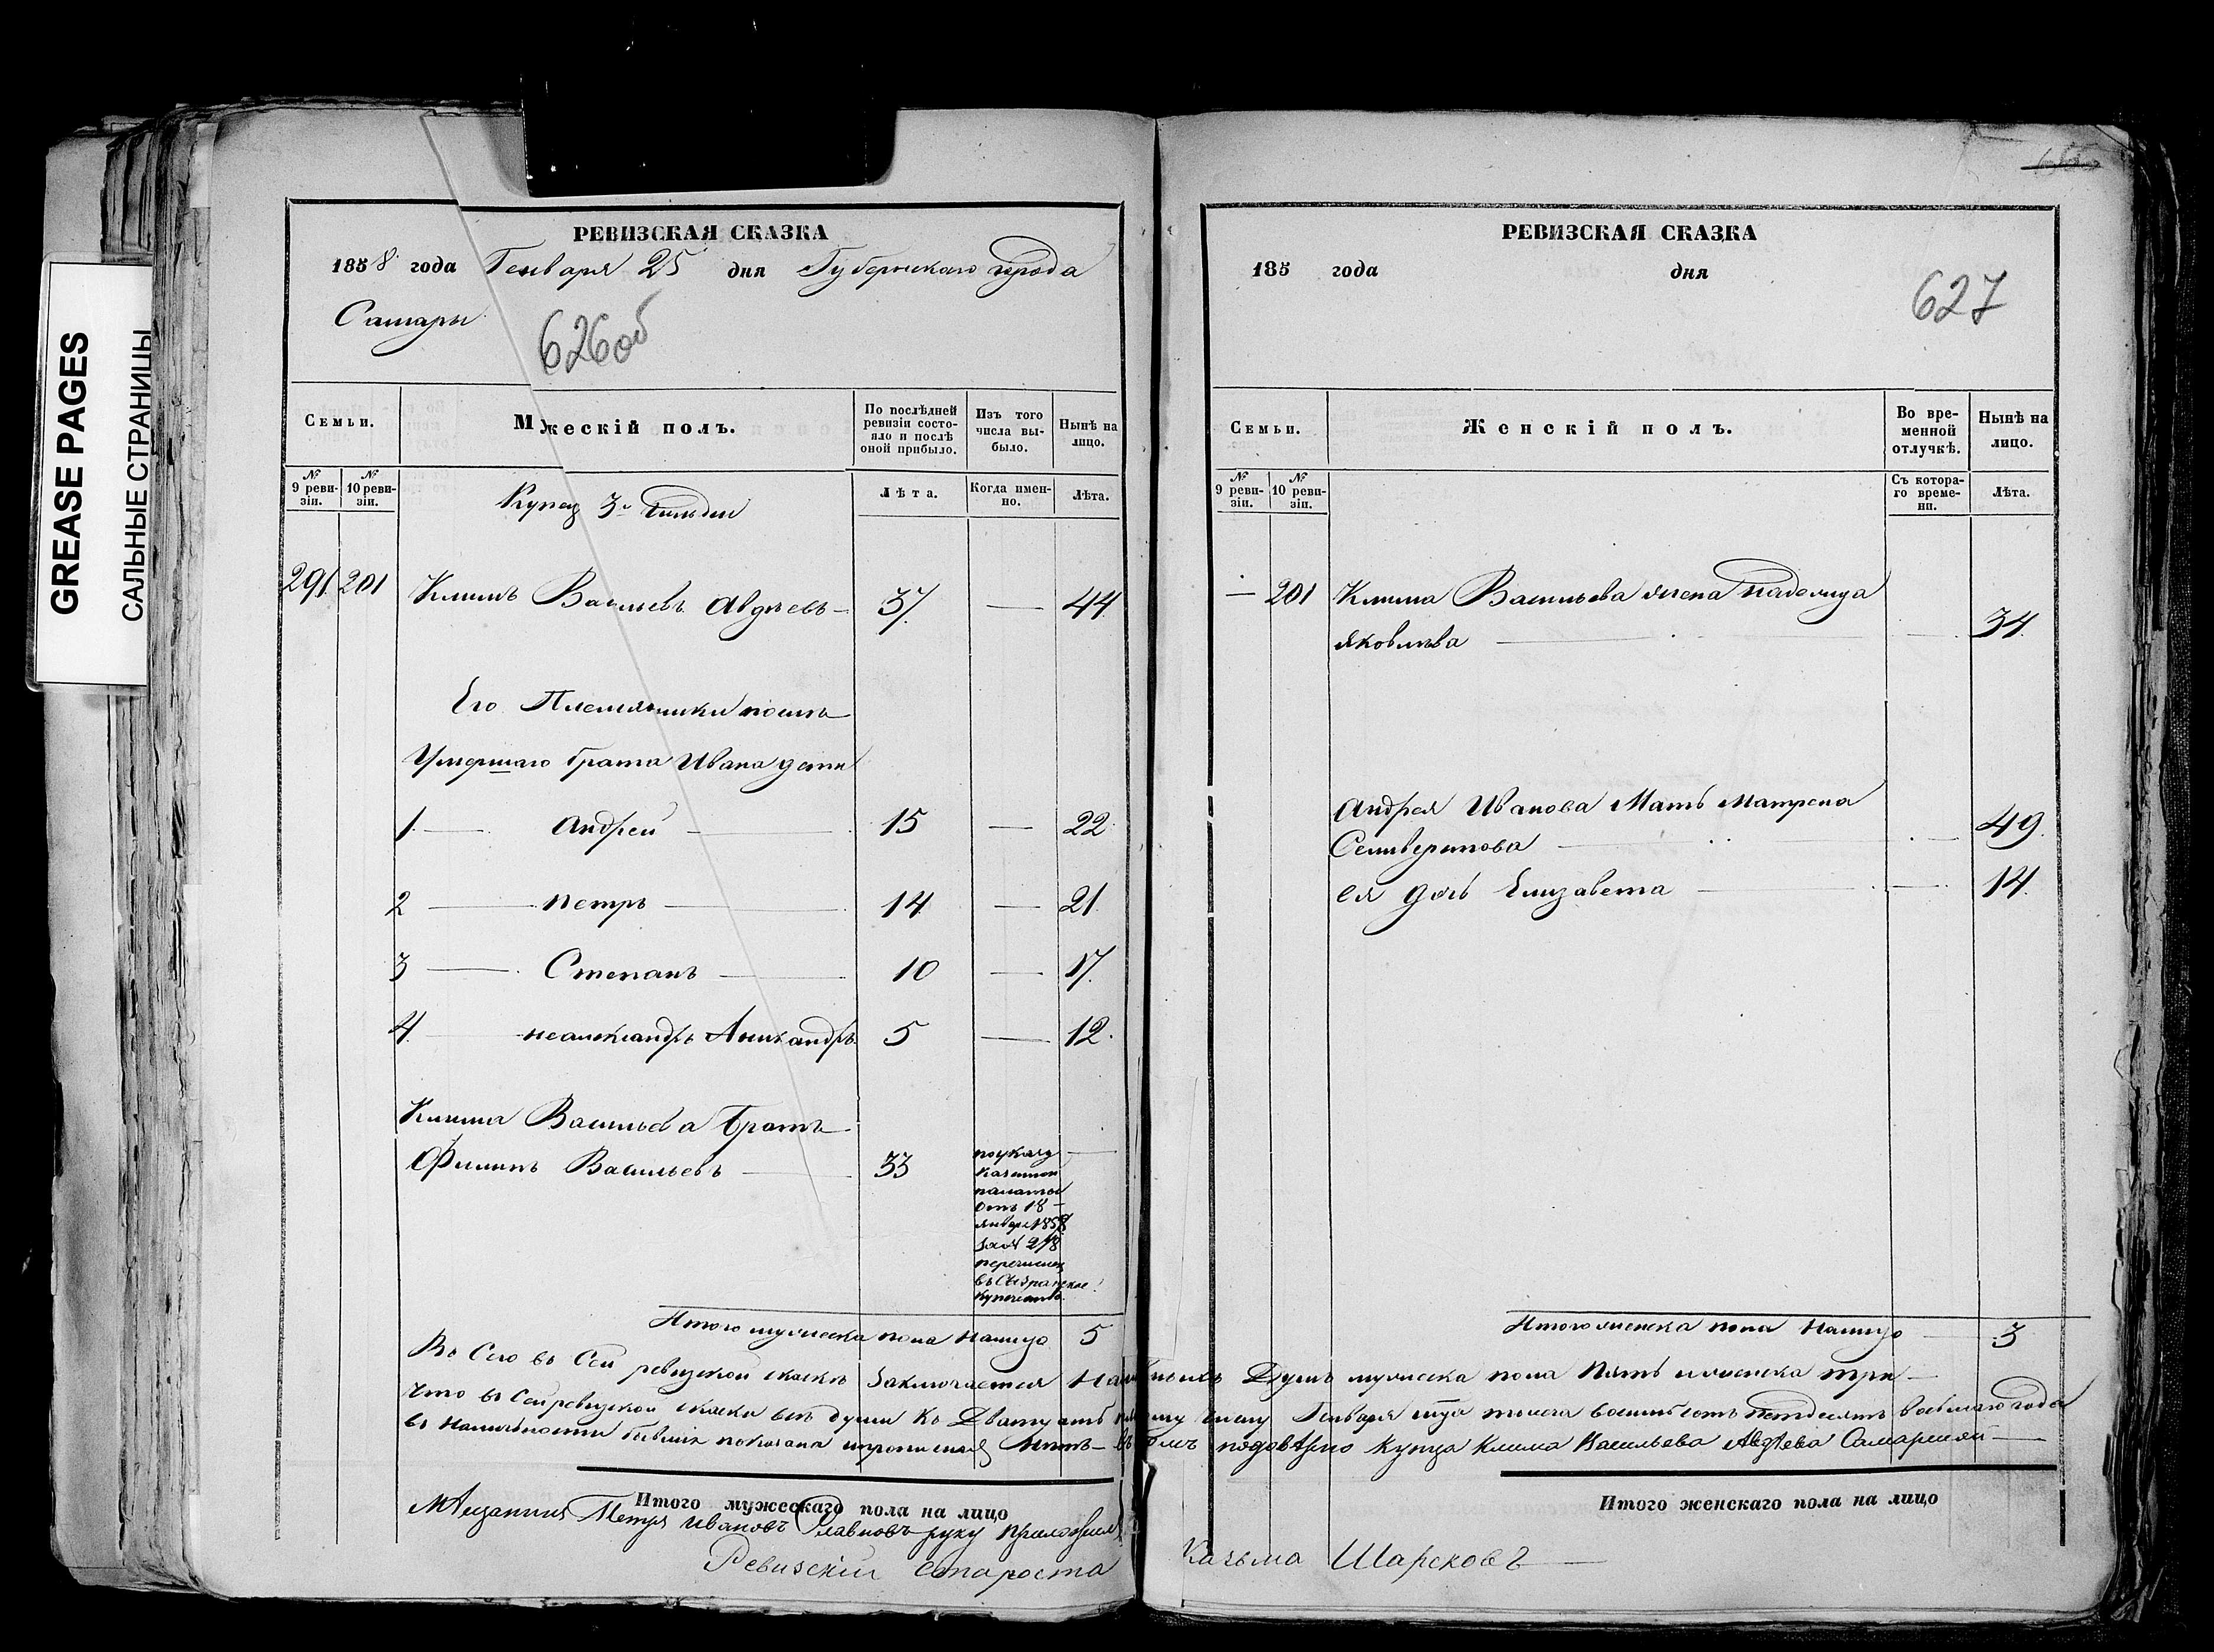 GREASE PAGES
САЛЬНЫЕ СТРАНИЦЫ
РЕВИЗСКАЯ СКАЗКА
1858 года Генваря 25 дня Губернскаго города
Самары
626об
Семьи.
Мжескій полъ.
По послѣдней ревизіи состояло и послѣ оной прибыло.
Изъ того числа выбыло.
Нынѣ на лицо.
№ 9 ревизіи.
№ 10 ревизіи.
Лѣта.
Когда именно.
Лѣта.
Купец 3й Гильдии
291 201 Климъ Васильевъ Авдѣевъ — 37. — 44.
Его Племянники
Умершаго брата Ивана дети
1. — Андрей — 15 — 22.
2 — Петръ — 14. — 21.
3 — Степанъ — 10 — 17.
4. — неалександръ Аникандръ 5 — 12.
Клима Васильева Братъ
Филипъ Васильевъ — 33 —
по указу
Казенной
палаты
отъ 18
января 1858
за № 278
перечислен
въ Сызранское
купечество.
Итого мужеска пола налицо 5
РЕВИЗСКАЯ СКАЗКА
185 года дня
627
Семьи.
Женскій полъ.
Во временной отлучкѣ.
Нынѣ на лицо.
№ 9 ревизіи.
№ 10 ревизіи.
Съ котораго времени.
Лѣта.
— 201 Клима Васильева жена
Яковлева — 34.
Андрея Иванова Мать Матрена
Селиверстова — 49.
ея дочь Елизавета — 14.
Итого женска пола налицо — 3
Всего въ Сей ревизской скаске заключается Наличныхъ Душъ мужеска пола Пять и женска три —
что въ Сей ревизской скаски все души къ Двадцать пятому числу Генваря тысяча восимьсотъ петдесятъ восьмаго года
въ наличности бывших показаны и прописных нетъ — въ томъ подавтою купца Клима Васильева Авдѣева Самарской —
Итого мужескаго пола на лицо
Итого женскаго пола на лицо
Мещанинъ Петръ Ивановъ руку приложилъ
Ревизскій староста Казьма Шарсковъ —